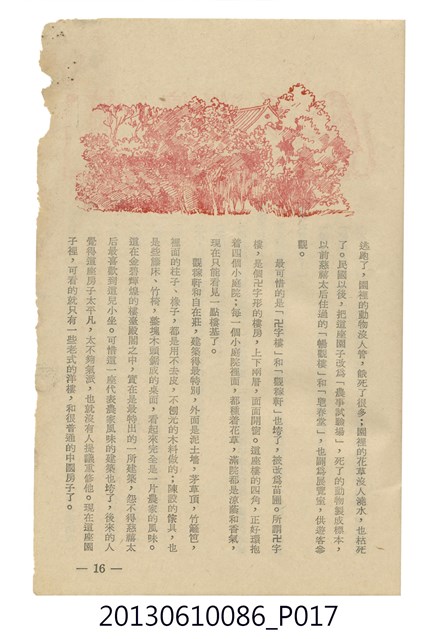 逃跑了，園裡的動物沒人管，餓死了很多；園裡的花草沒人澆水，也枯死
了。民國以後，把這座園子改為「農事試驗場」，死了的動物製成標本，
以前慈禧太后住過的「暢觀樓」和「鬯春堂」，也闢為展覽室，供遊客參
觀。
最可惜的是「卍字樓」和「觀稼軒」也垮了，被改為苗圃。所謂卍字
樓，是個卍字形的樓房，上下兩層，面面開窗。這座樓的四角，正好環抱
着四個小庭院；每一個小庭院裡面，都種着花草，滿院都是涼蔭和香氣，
現在只能看見一點樓基了。
觀稼軒和自在莊，建築得最特別，外面是泥土墻，茅草頂，竹籬笆，
裡面的柱子、椽子，都是用不去皮，不刨光的木料做的；陳設的傢具，也
是些籐床、竹椅，整塊木頭鋸成的桌面，看起來完全是一片農家的風味。
這在金碧輝煌的樓臺殿閣之中，實在是最特出的一所建築，怨不得慈禧太
后最喜歡到這兒小坐。可惜這一座代表農家風味的建築也垮了，後來的人
覺得這座房子太平凡，太不夠氣派，也就沒有人提議重修他。現在這座園
子裡，可看的就只有一些老式的洋樓，和很普通的中國房子了。
— 16 —
20130610086_P017